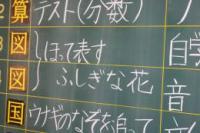 算 テスト(分数)
3 図 ほって表す 自学
4 図 ふしぎな花 音
国 ウナギのなぞを追って 音